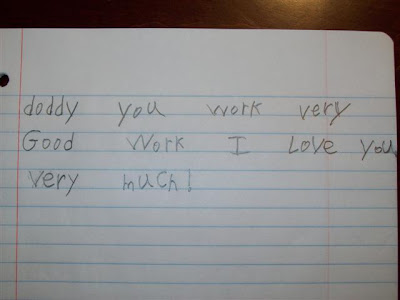 doddy you work very
Good Work I Love you
very much!